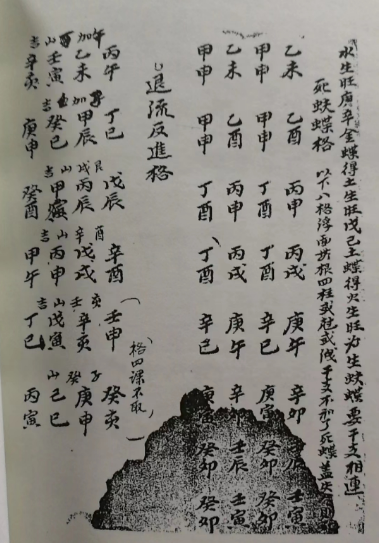 水生旺庚辛金蝶得土生旺戊己土蝶得火生旺为生蚨蝶要干支相連
死蚨蝶格 以下八格浮面共根四柱或尅或洩干支不和了死蝶盖
乙未 乙酉 丙申 丙戌 庚午 辛卯 壬辰 壬寅
甲申 甲申 丁酉 丁酉 辛巳 庚寅 癸卯 癸卯
乙未 乙酉 丙申 丙戌 庚午 辛卯 壬辰 壬寅
甲申 甲申 丁酉 丁酉 辛巳 庚寅 癸卯 癸卯
退流反進格
(格四課不取)
丙午 丁巳 戊辰 辛酉 壬申 癸亥
午 子 艮 酉 亥 子
加乙未 加甲辰 戌丙辰 辛戊戌 壬辛亥 癸庚申
山壬寅 山癸巳 山甲寅 山丙申 山戊寅 山己巳
吉辛亥 吉庚申 癸酉 甲午 吉丁巳 丙寅